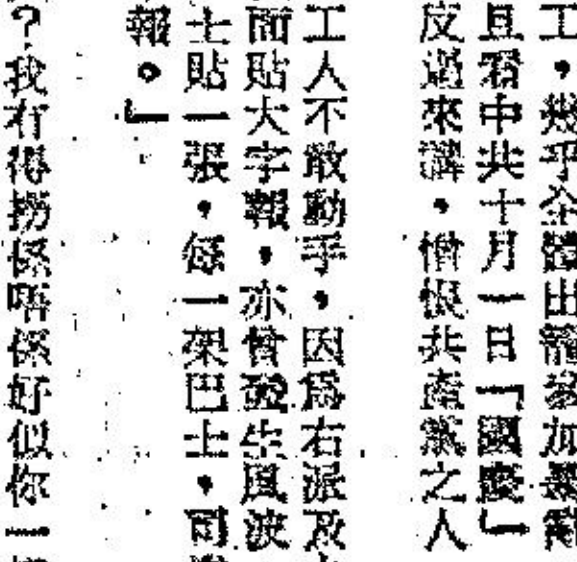 工，幾乎全體出籠參加暴動
且看中共十月一日「國慶」
反過來講，憎恨共產黨之人
工人不敢動手，因爲右派及
面貼大字報，亦曾發生風波
士貼一張，每一架巴士，司
報。」
？我有得撈係唔係好似你一